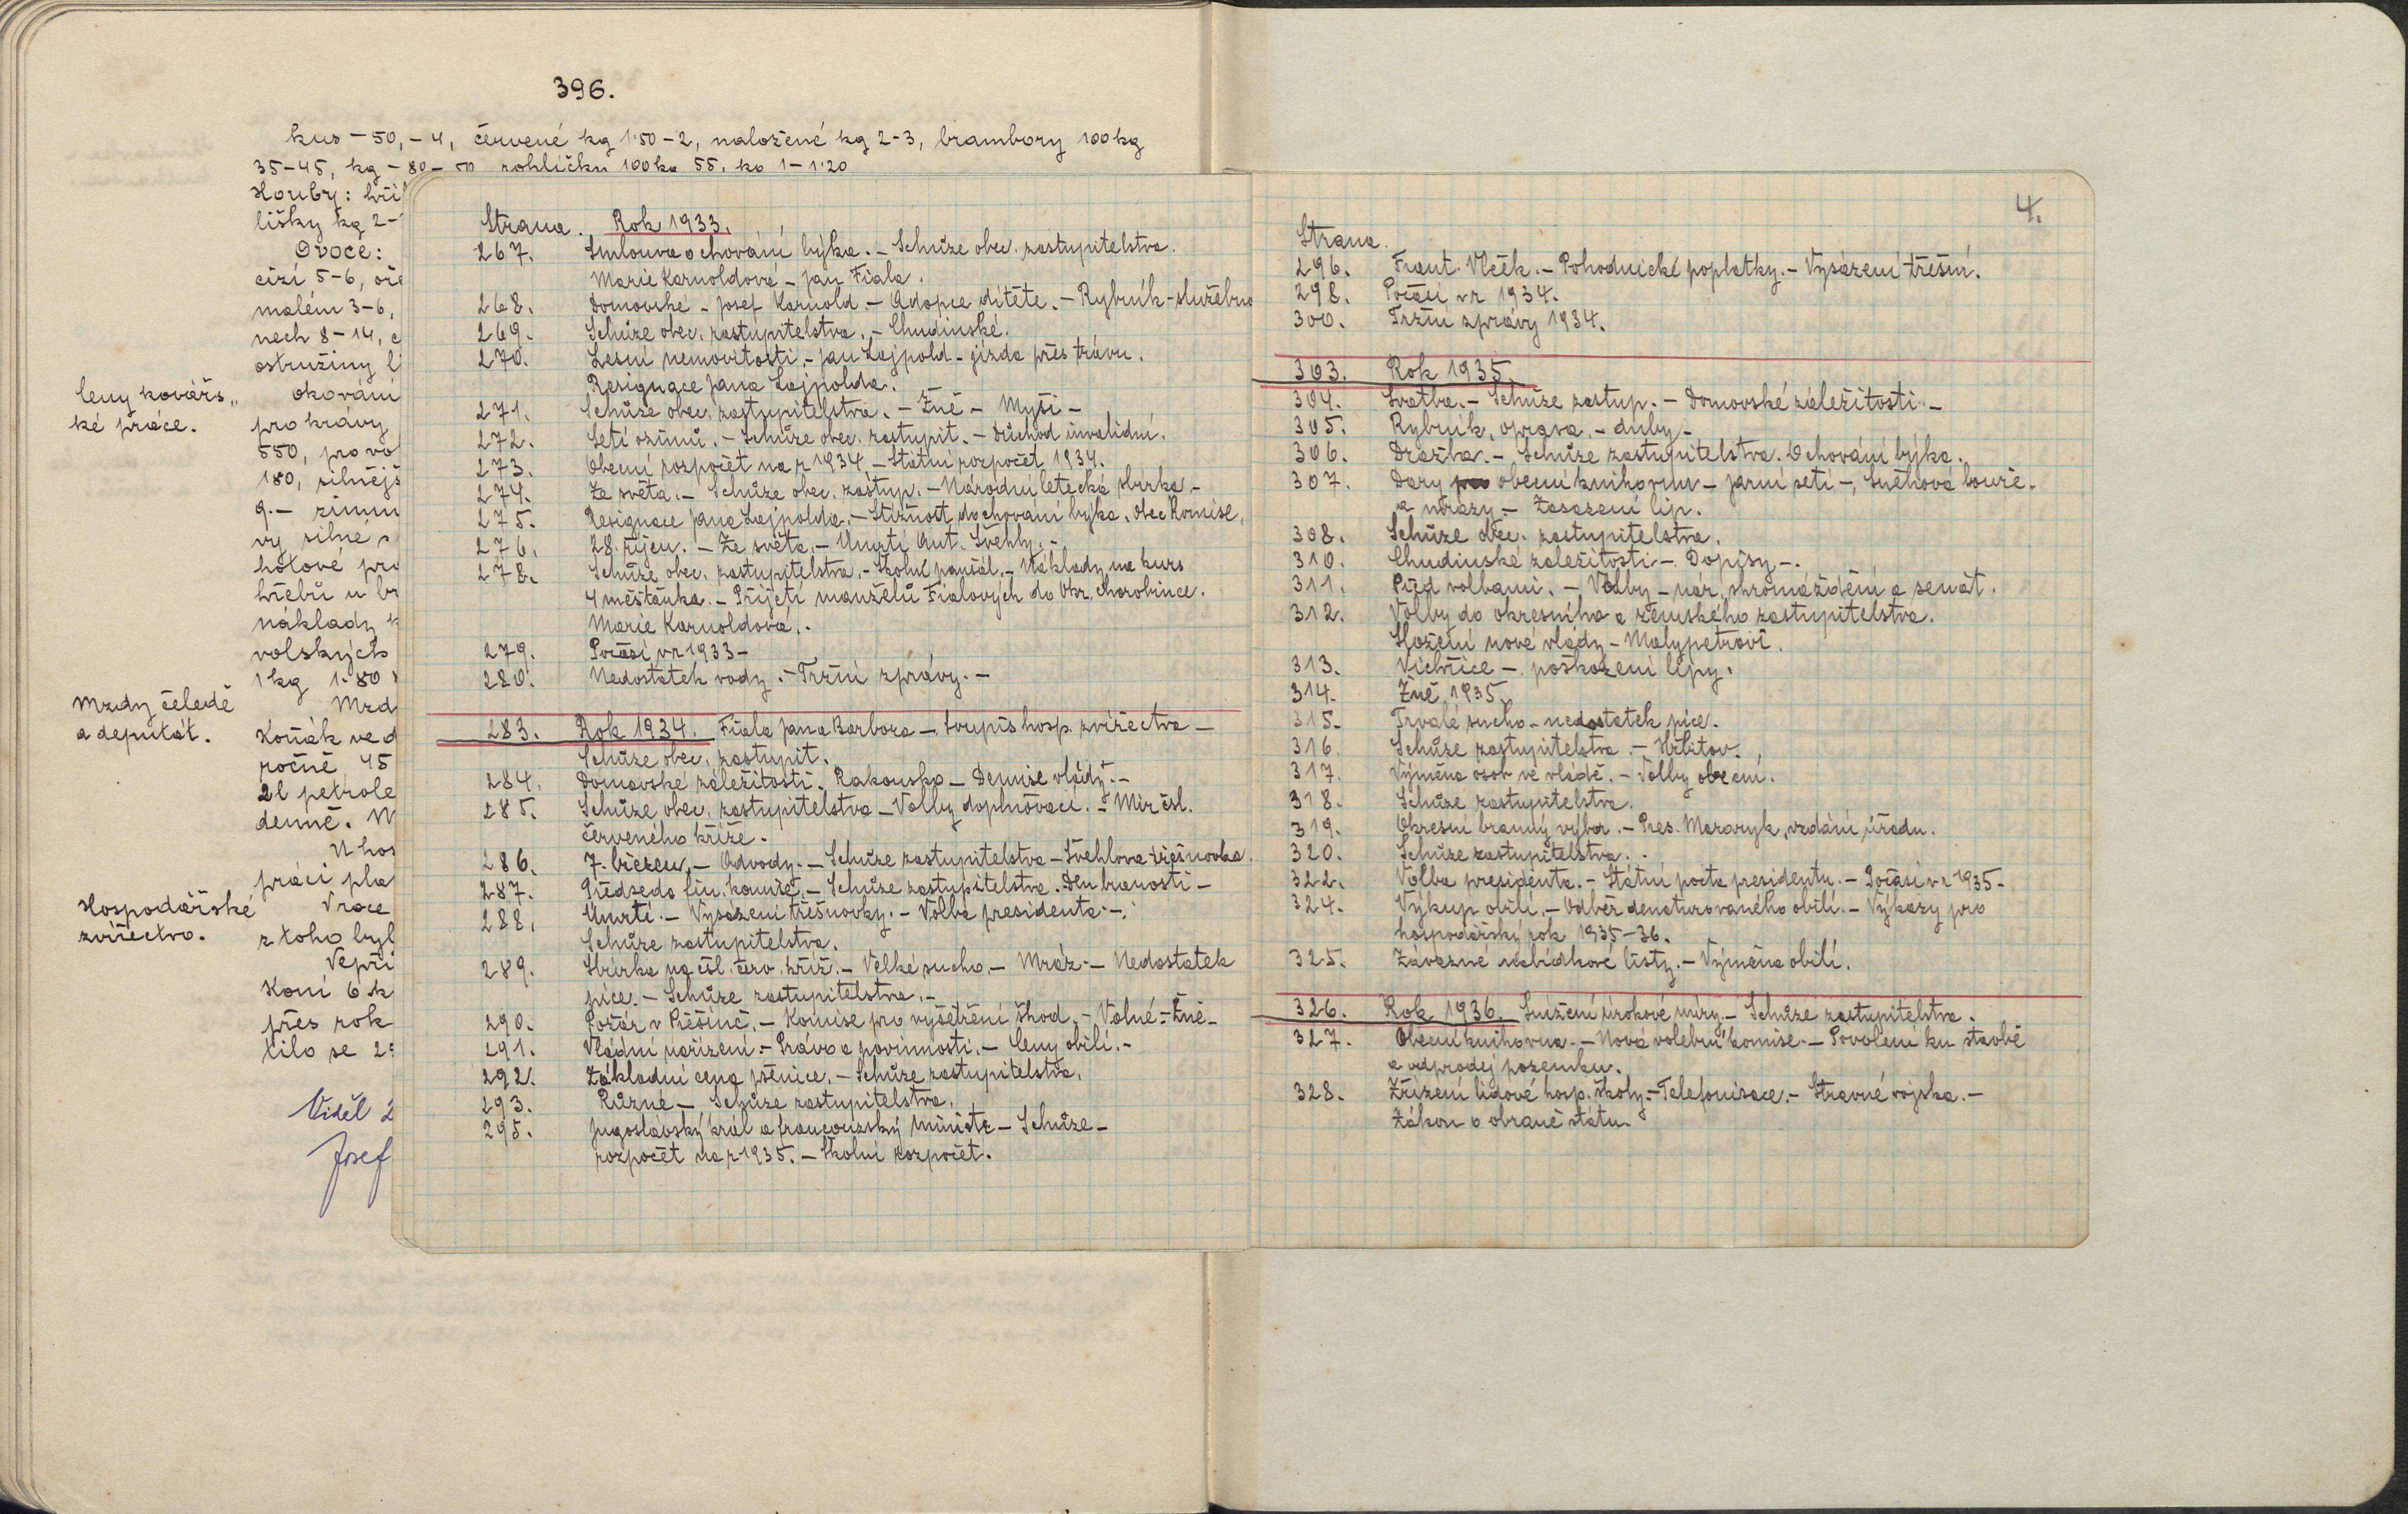 396.
kus -50, -4, červené kg 1·50-2, naložené kg 2-3, brambory 100 kg
35-45, kg -80- rohlíčky 100 kg 55, kg 1-1·20
Houby:
lišky kg 2-
Ovoce:
cizí 5-6,
malém 3-6,
nech 8-14,
ostružiny
Ceny kovářs„
ké práce.
okování
pro krávy
550, pro
180, silnějš
9.-
vy silné
hotové
hřebů u
náklady
volských
1 kg 1·80
Mzdy čeledě
a deputát.
Mzd
Koňák ve
ročně 45
2l petrole
denně.
U hos
práci pla
Hospodářské
zvířectvo.
V roce
z toho byl
Vepři
Koní 6
přes rok
tilo se
Viděl
Josef
Strana. Rok 1933.
267. Smlouva o chování býka. - Schůze obec. zastupitelstva.
Marie Karnoldová - Jan Fiala.
268. Domovské - Josef Karnold. - Adopce dítěte. - Rybník - služebno
269. Schůze obec. zastupitelstva. - Chudinské.
270. Lesní nemovitosti. - Jan Lajpold - jízda přes trávu.
Resignace Jana Lajpolda. -
271. Schůze obec. zastupitelstva. - Žně - Myši -
272. Setí ozimů. - Schůze obec. zastupit. - Důchod invalidní.
273. Obecní rozpočet na r 1934 - Státní rozpočet 1934.
274. Ze světa. - Schůze obec. zastup. - Národní letecká sbírka -
275. Resignace Jana Lajpolda. - Stížnost do chovaní býka. Obec Komise.
276. 28. říjen. - Ze světa. - Úmrtí Ant. Švehly. -
278. Schůze obec. zastupitelstva. - Školní paušál. - Náklady na kurs
4 měšťanka. - Přijetí manželů Fialových do Okr. chorobince.
Marie Karnoldová. -
279. Počasí v r 1933 -
280. Nedostatek vody. - Tržní zprávy. -
283. Rok 1934. Fiala Jana Barbora - Soupis hosp. zvířectva -
Schůze obec. zastupit.
284. Domovské záležitosti. Rakousko - Demise vlády. -
285. Schůze obec. zastupitelstva - Volby doplňovací. - Mír čsl.
červeného kříže.
286. 7. březen. - Odvody. - Schůze zastupitelstva - Švehlova třešňovka.
287. Předseda fin. komise. - Schůze zastupitelstva. Den brannosti -
288. Úmrtí. - Vysázení třešňovky. - Volba presidenta -.
Schůze zastupitelstva.
289. Sbírka na čsl. červ. kříž. - Velké sucho. - Mráz. - Nedostatek
píce. - Schůze zastupitelstva. -
290. Požár v - Komise pro vyšetření škod. - Volné. - Žně -
291. Vládní nařízení. - Práva a povinnosti. - Ceny obilí. -
292. Základní cena pšenice. - Schůze zastupitelstva.
293. Různé - Schůze zastupitelstva.
295. Jugoslávský král a francouzský ministr - Schůze -
rozpočet na r 1935. - Školní rozpočet.
4.
Strana.
296. Frant. Vlček. - Pohodnické poplatky. - Vysázení třešní.
298. Počasí v r 1934.
300. Tržní zprávy 1934.
303. Rok 1935.
304. Svatba. - Schůze zastup. - Domovské záležitosti. -
305. Rybník, oprava. - duby -
306. Dražba. - Schůze zastupitelstva. Ochování býka.
307. Dary obecní knihovny - jarní setí -, Sněhová bouře.
a mrazy. - Zasazení lip.
308. Schůze obec. zastupitelstva.
310. Chudinské záležitosti -. Dopisy -.
311. Před volbami. - Volby - nár. shromáždění a senát.
312. Volby do okresního a zemského zastupitelstva.
Složení nové vlády - Malypetrovi.
313. Vichřice - poškození lípy.
314. Žně 1935.
315. Trvalé sucho - nedostatek píce.
316. Schůze zastupitelstva. - Hřbitov.
317. Výměna osob ve vládě. - Volby obecní.
318. Schůze zastupitelstva.
319. Okresní branný výbor. - Pres. Masaryk, vzdání úřadu.
320. Schůze zastupitelstva. .
322. Volba presidenta. - Státní pocta presidentu. - Počasí v r 1935 -
324. Výkup obilí. - Odběr denaturovaného obilí. - Výkazy pro
hospodářský rok 1935-36.
325. Závazné nabídkové listy. - Výměna obilí.
326. Rok 1936. Snížení úrokové míry. - Schůze zastupitelstva.
327. Obecní knihovna. - Nová volební komise. - Povolení ku stavbě
a odprodej pozemku.
328. Zřízení lidové hosp. školy. - Telefonisace. - Stravné vojska. -
Zákon o obraně státu.